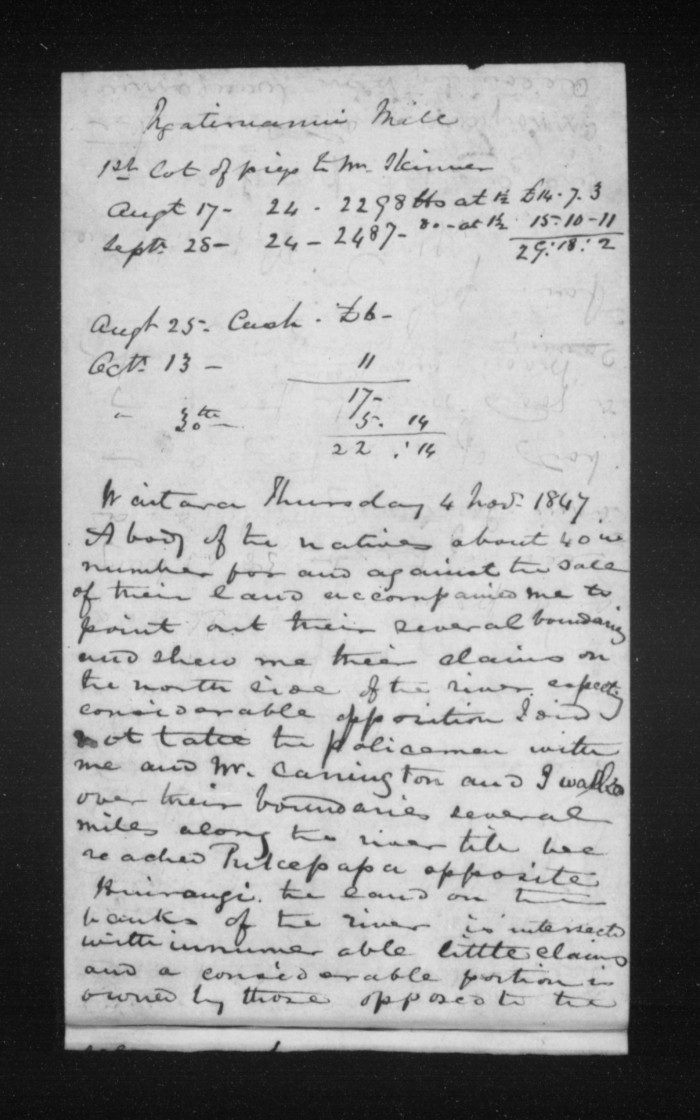 Ngatiruanui Mill
1st Lot of pigs to Mr. Skinner
Augt 17 - 24 - 2298 lbs at 1½ £14.7.3
Septr 28 - 24 - 2487 - Do - at 1½ 15-10-11
29:18:2
Augt 25. Cash. £6-
Octr 13 - 11
17-
" 30th 5. 14
22 : 14
Waitara Thursday 4 Novr 1847
A body of the natives about 40 in
number for and against the sale
of their land accompanied me to
point out their several boundaries
and shew me their claims on
the north side of the river expecting
considerable opposition I did
not take the policemen with
me and Mr. Carrington and I walked
over their boundaries several
miles along the river till we
reached Pukepapa opposite
Huirangi. the land on the
banks of the river is intersected
with innumerable little claims
and a considerable portion is
owned by those opposed to the